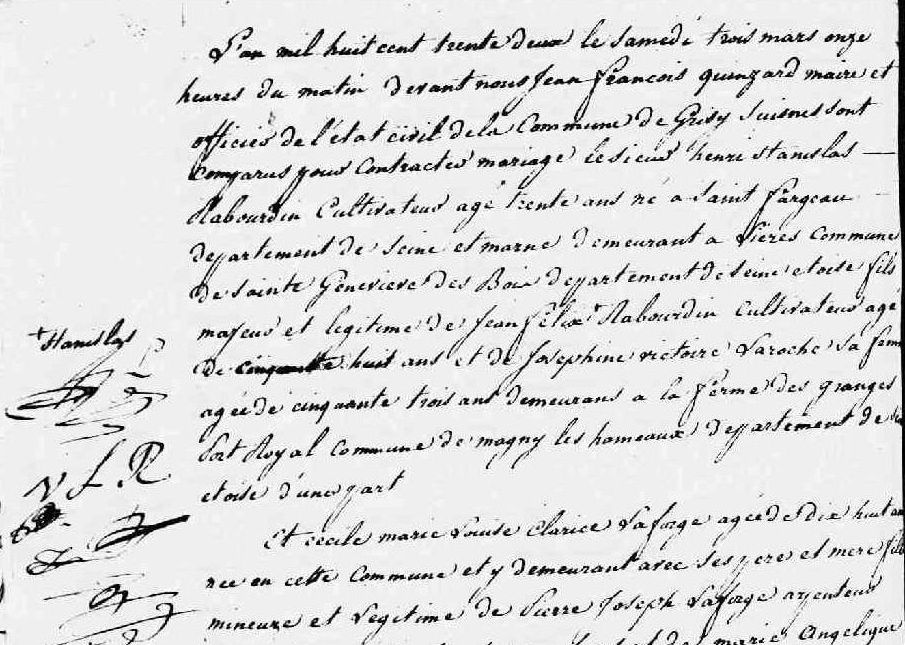 L'an mil huit cent trente deux le samedi trois mars onze
heures du matin devant nous Jean François quinzard maire et
officier de l'état civil de la Commune de Grisy Suisnes sont
Comparus pour Contracter mariage le sieur henri Stanislas —
Rabourdin Cultivateur agé trente ans né a Saint fargeau
departement de Seine et marne demeurant a Liers Commune
de Sainte Genevieve des Bois departement de Seine et oise fils
majeur et legitime de Jean félix Rabourdin Cultivateur agé
+ Stanislas
de cinquante huit ans et de Josephine victoire Laroche Sa fem
agée de cinquante trois ans demeurans a la ferme des granges
Port Royal Commune de magny les hameaux departement de
N f R
et oise d'une part
Et cécile marie Louise Clarice Laforge agée de dix huit an
nee en cette Commune et y demeurant avec Ses pere et mere fille
mineure et Legitime de Pierre Joseph Laforge arpenteur
et de marie Angelique